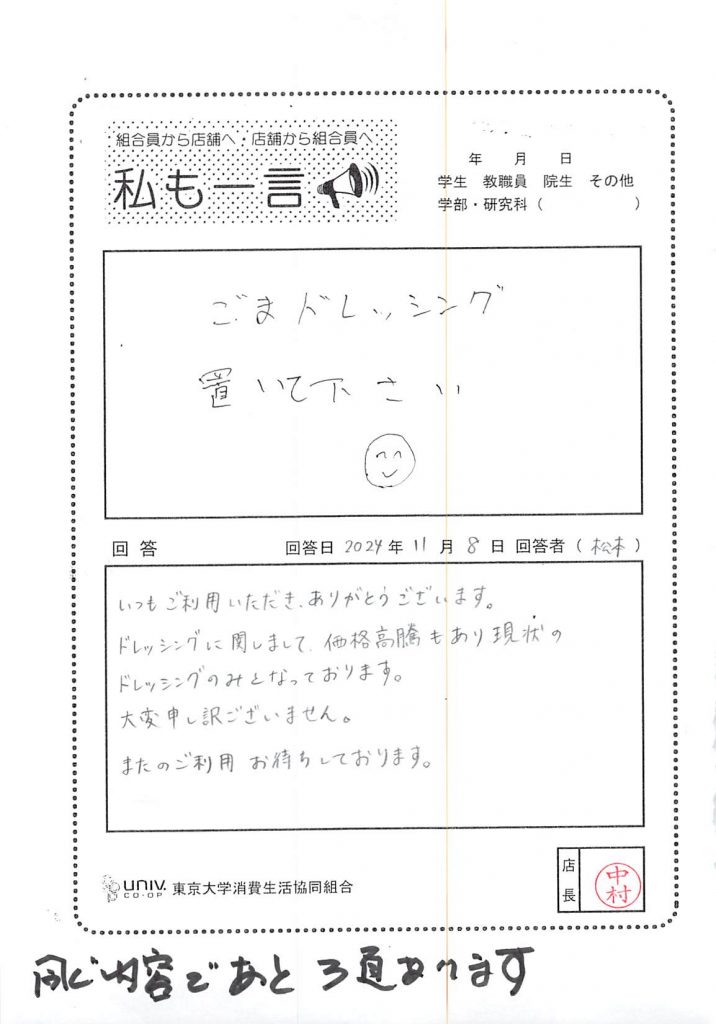 組合員から店舗へ・店舗から組合員へ
私も一言
年 月 日
学生 教職員 院生 その他
学部・研究科（ ）
ごまドレッシング
置いて下さい
回答 回答日 2024年 11月 8日 回答者（松本）
いつもご利用いただき、ありがとうございます。
ドレッシングに関しまして、価格高騰もあり現状の
ドレッシングのみとなっております。
大変申し訳ございません。
またのご利用 お待ちしております。
店長
中村
UNIV.
CO-OP
東京大学消費生活協同組合
同じ内容であと3通あります